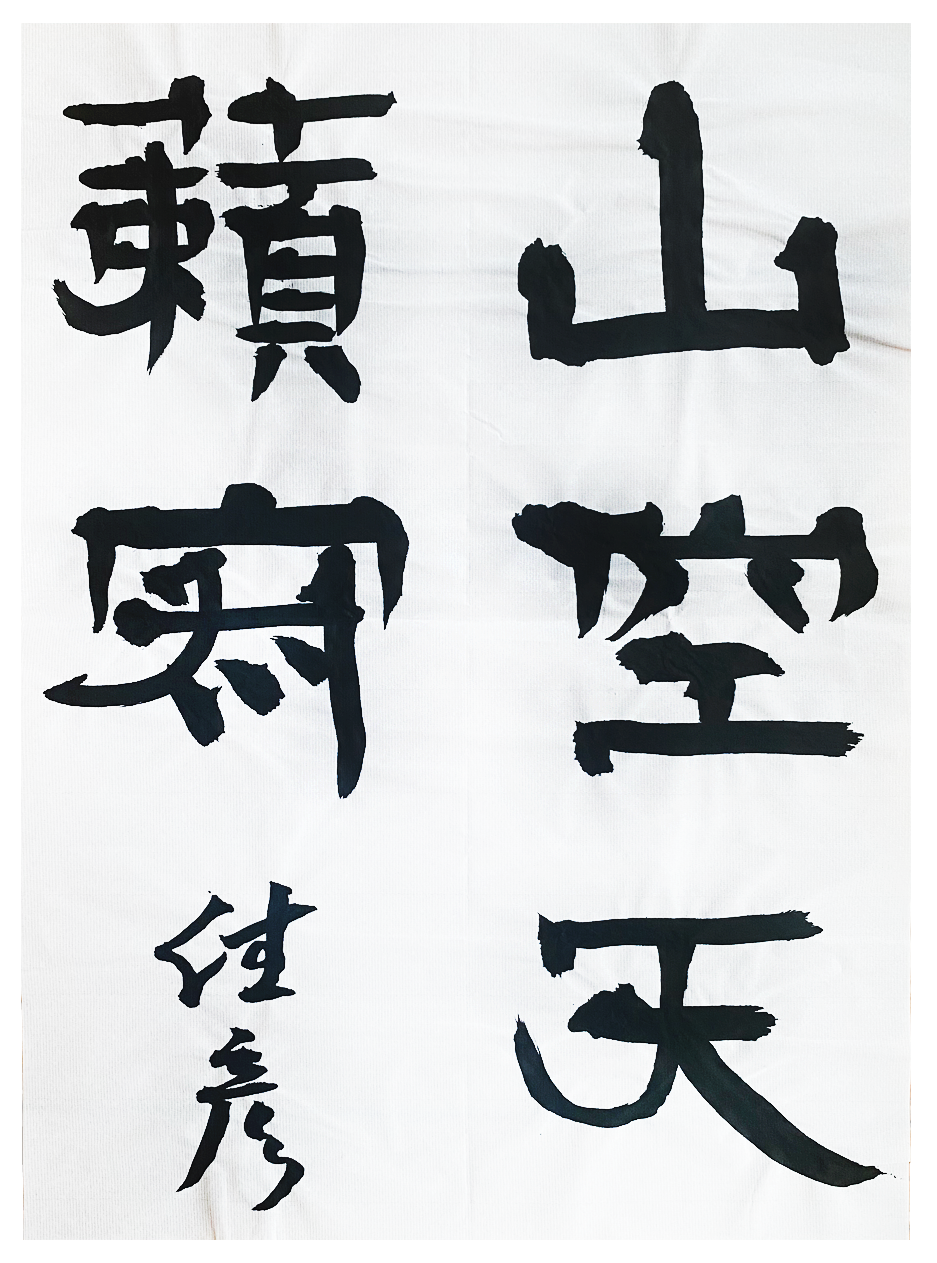 山空天
籟寂
佳彥